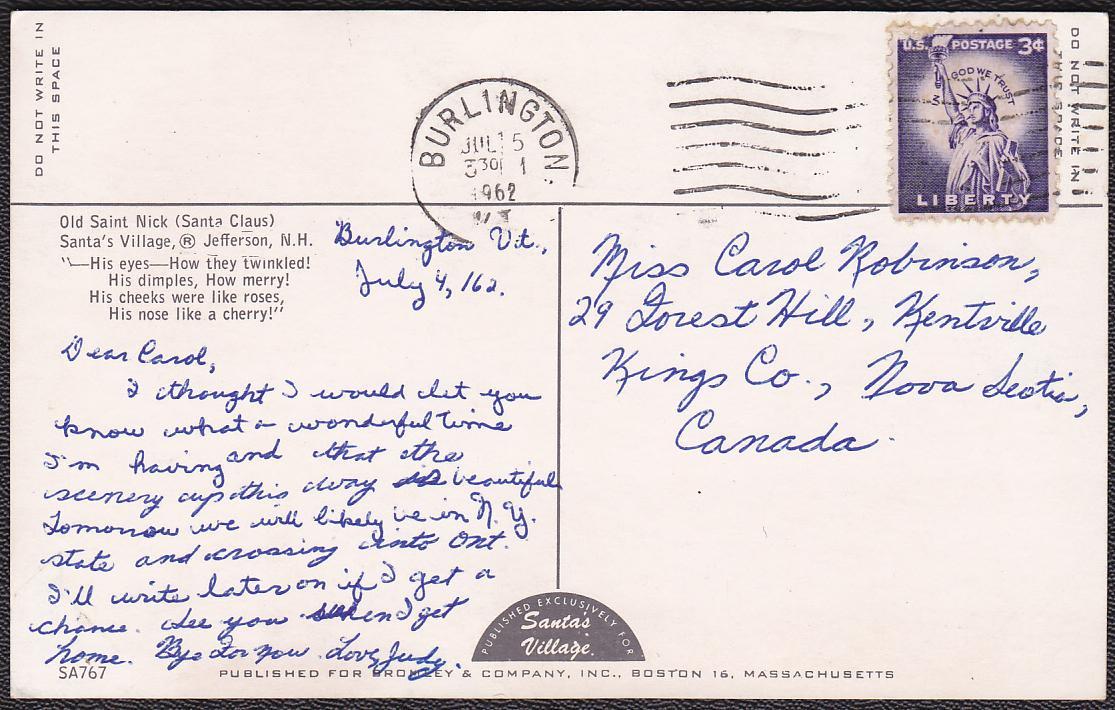 DO NOT WRITE IN
THIS SPACE
BURLINGTON.
JUL 5
330
1962
U.S. POSTAGE 3¢
IN GOD WE TRUST
LIBERTY
DO NOT WRITE IN
THIS SPACE
Old Saint Nick (Santa Claus)
Santa's Village,® Jefferson, N.H.
"—His eyes—How they twinkled!
His dimples, How merry!
His cheeks were like roses,
His nose like a cherry!"
Burlington Vt.,
July 4, '62.
Dear Carol,
I thought I would let you
know what a wonderful time
I'm having and that the
scenery up this way is beautiful
Tomorrow we will likely be in N.Y.
state and crossing into Ont.
I'll write later on if I get a
chance. See you when I get
home. Bye for now. Love, Judy.
Miss Carol Robinson,
29 Forest Hill, Kentville
Kings Co., Nova Scotia,
Canada.
PUBLISHED EXCLUSIVELY FOR
Santa's
Village.
SA767
PUBLISHED FOR BROMLEY & COMPANY, INC., BOSTON 16, MASSACHUSETTS